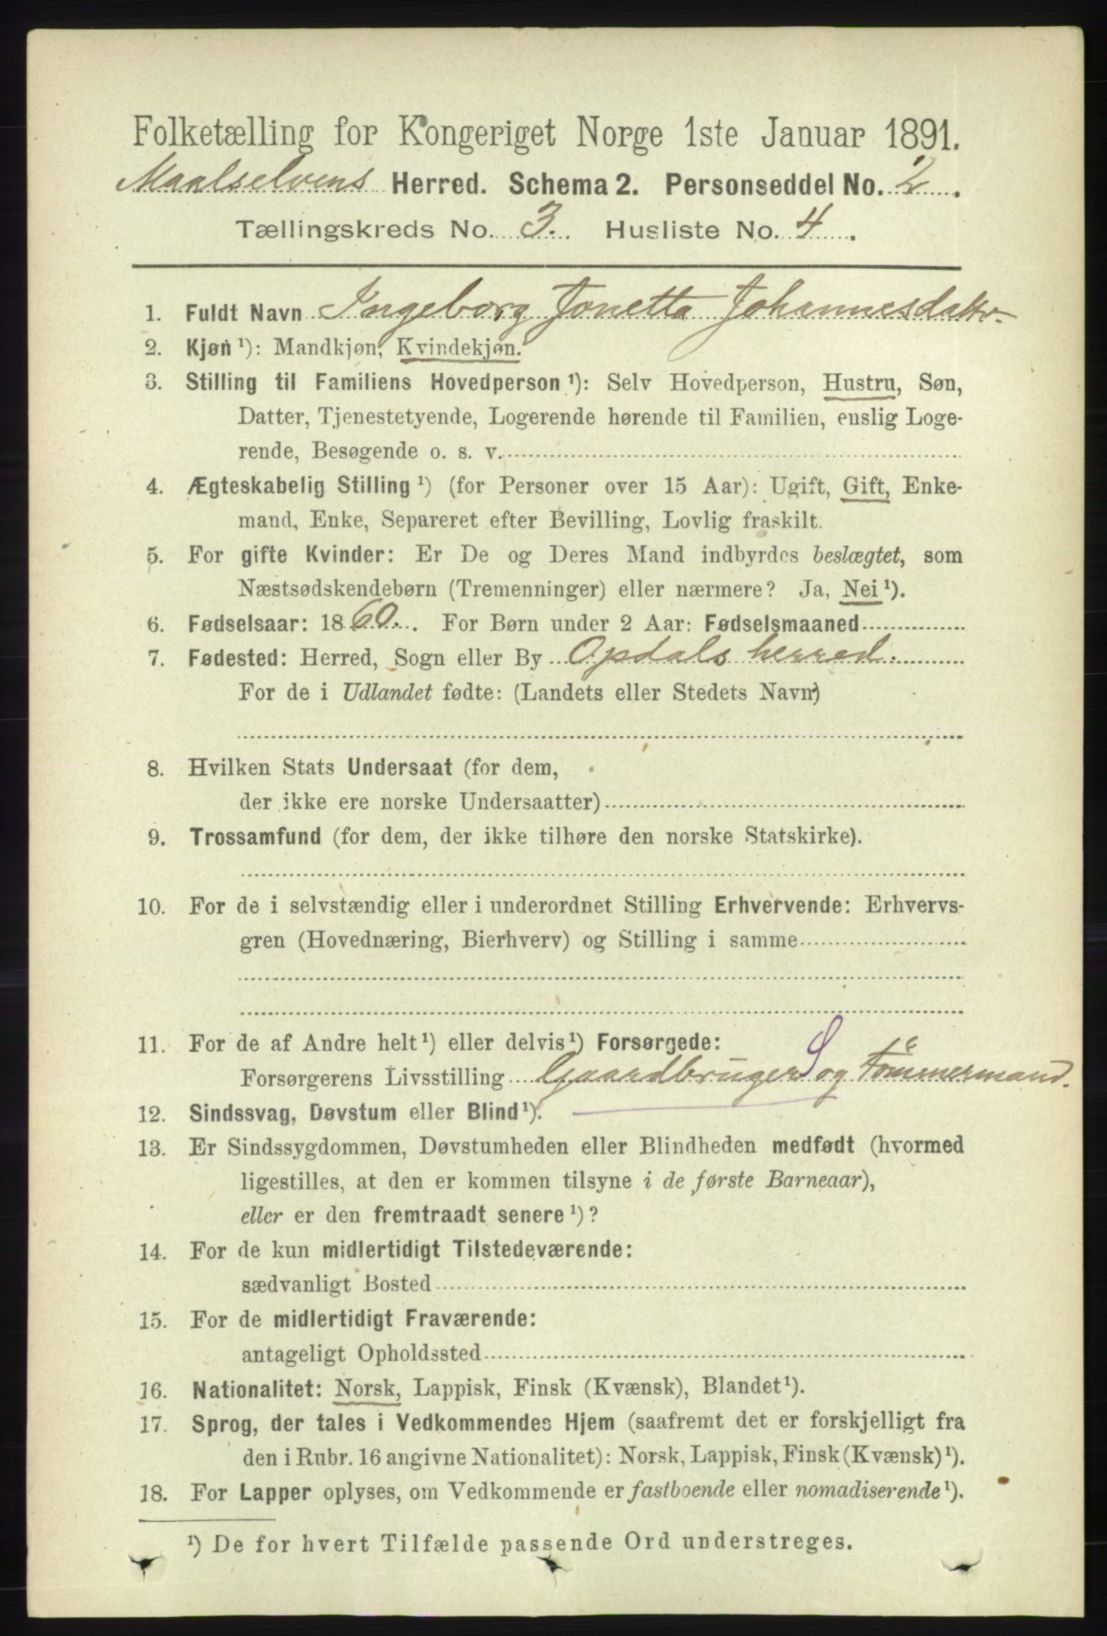 Folketælling for Kongeriget Norge 1ste Januar 1891.
Maalselvens Herred. Schema 2. Personseddel No. 2.
Tællingskreds No. 3. Husliste No. 4.
1. Fuldt Navn Ingeborg Jonetta Johannesdattr.
2. Kjøn ¹): Mandkjøn, Kvindekjøn.
3. Stilling til Familiens Hovedperson ¹): Selv Hovedperson, Hustru, Søn,
Datter, Tjenestetyende, Logerende hørende til Familien, enslig Loge-
rende, Besøgende o. s. v.
4. Ægteskabelig Stilling ¹) (for Personer over 15 Aar): Ugift, Gift, Enke-
mand, Enke, Separeret efter Bevilling, Lovlig fraskilt.
5. For gifte Kvinder: Er De og Deres Mand indbyrdes beslægtet, som
Næstsødskendebørn (Tremenninger) eller nærmere? Ja, Nei ¹).
6. Fødselsaar: 1860. For Børn under 2 Aar: Fødselsmaaned
7. Fødested: Herred, Sogn eller By Opdals herred.
For de i Udlandet fødte: (Landets eller Stedets Navn)
8. Hvilken Stats Undersaat (for dem,
der ikke ere norske Undersaatter)
9. Trossamfund (for dem, der ikke tilhøre den norske Statskirke).
10. For de i selvstændig eller i underordnet Stilling Erhvervende: Erhvervs-
gren (Hovednæring, Bierhverv) og Stilling i samme
11. For de af Andre helt ¹) eller delvis ¹) Forsørgede:
Forsørgerens Livsstilling Gaardbruger S og Tømmermand.
12. Sindssvag, Døvstum eller Blind ¹).
13. Er Sindssygdommen, Døvstumheden eller Blindheden medfødt (hvormed
ligestilles, at den er kommen tilsyne i de første Barneaar),
eller er den fremtraadt senere ¹)?
14. For de kun midlertidigt Tilstedeværende:
sædvanligt Bosted
15. For de midlertidigt Fraværende:
antageligt Opholdssted
16. Nationalitet: Norsk, Lappisk, Finsk (Kvænsk), Blandet ¹).
17. Sprog, der tales i Vedkommendes Hjem (saafremt det er forskjelligt fra
den i Rubr. 16 angivne Nationalitet): Norsk, Lappisk, Finsk (Kvænsk) ¹).
18. For Lapper oplyses, om Vedkommende er fastboende eller nomadiserende ¹).
¹) De for hvert Tilfælde passende Ord understreges.